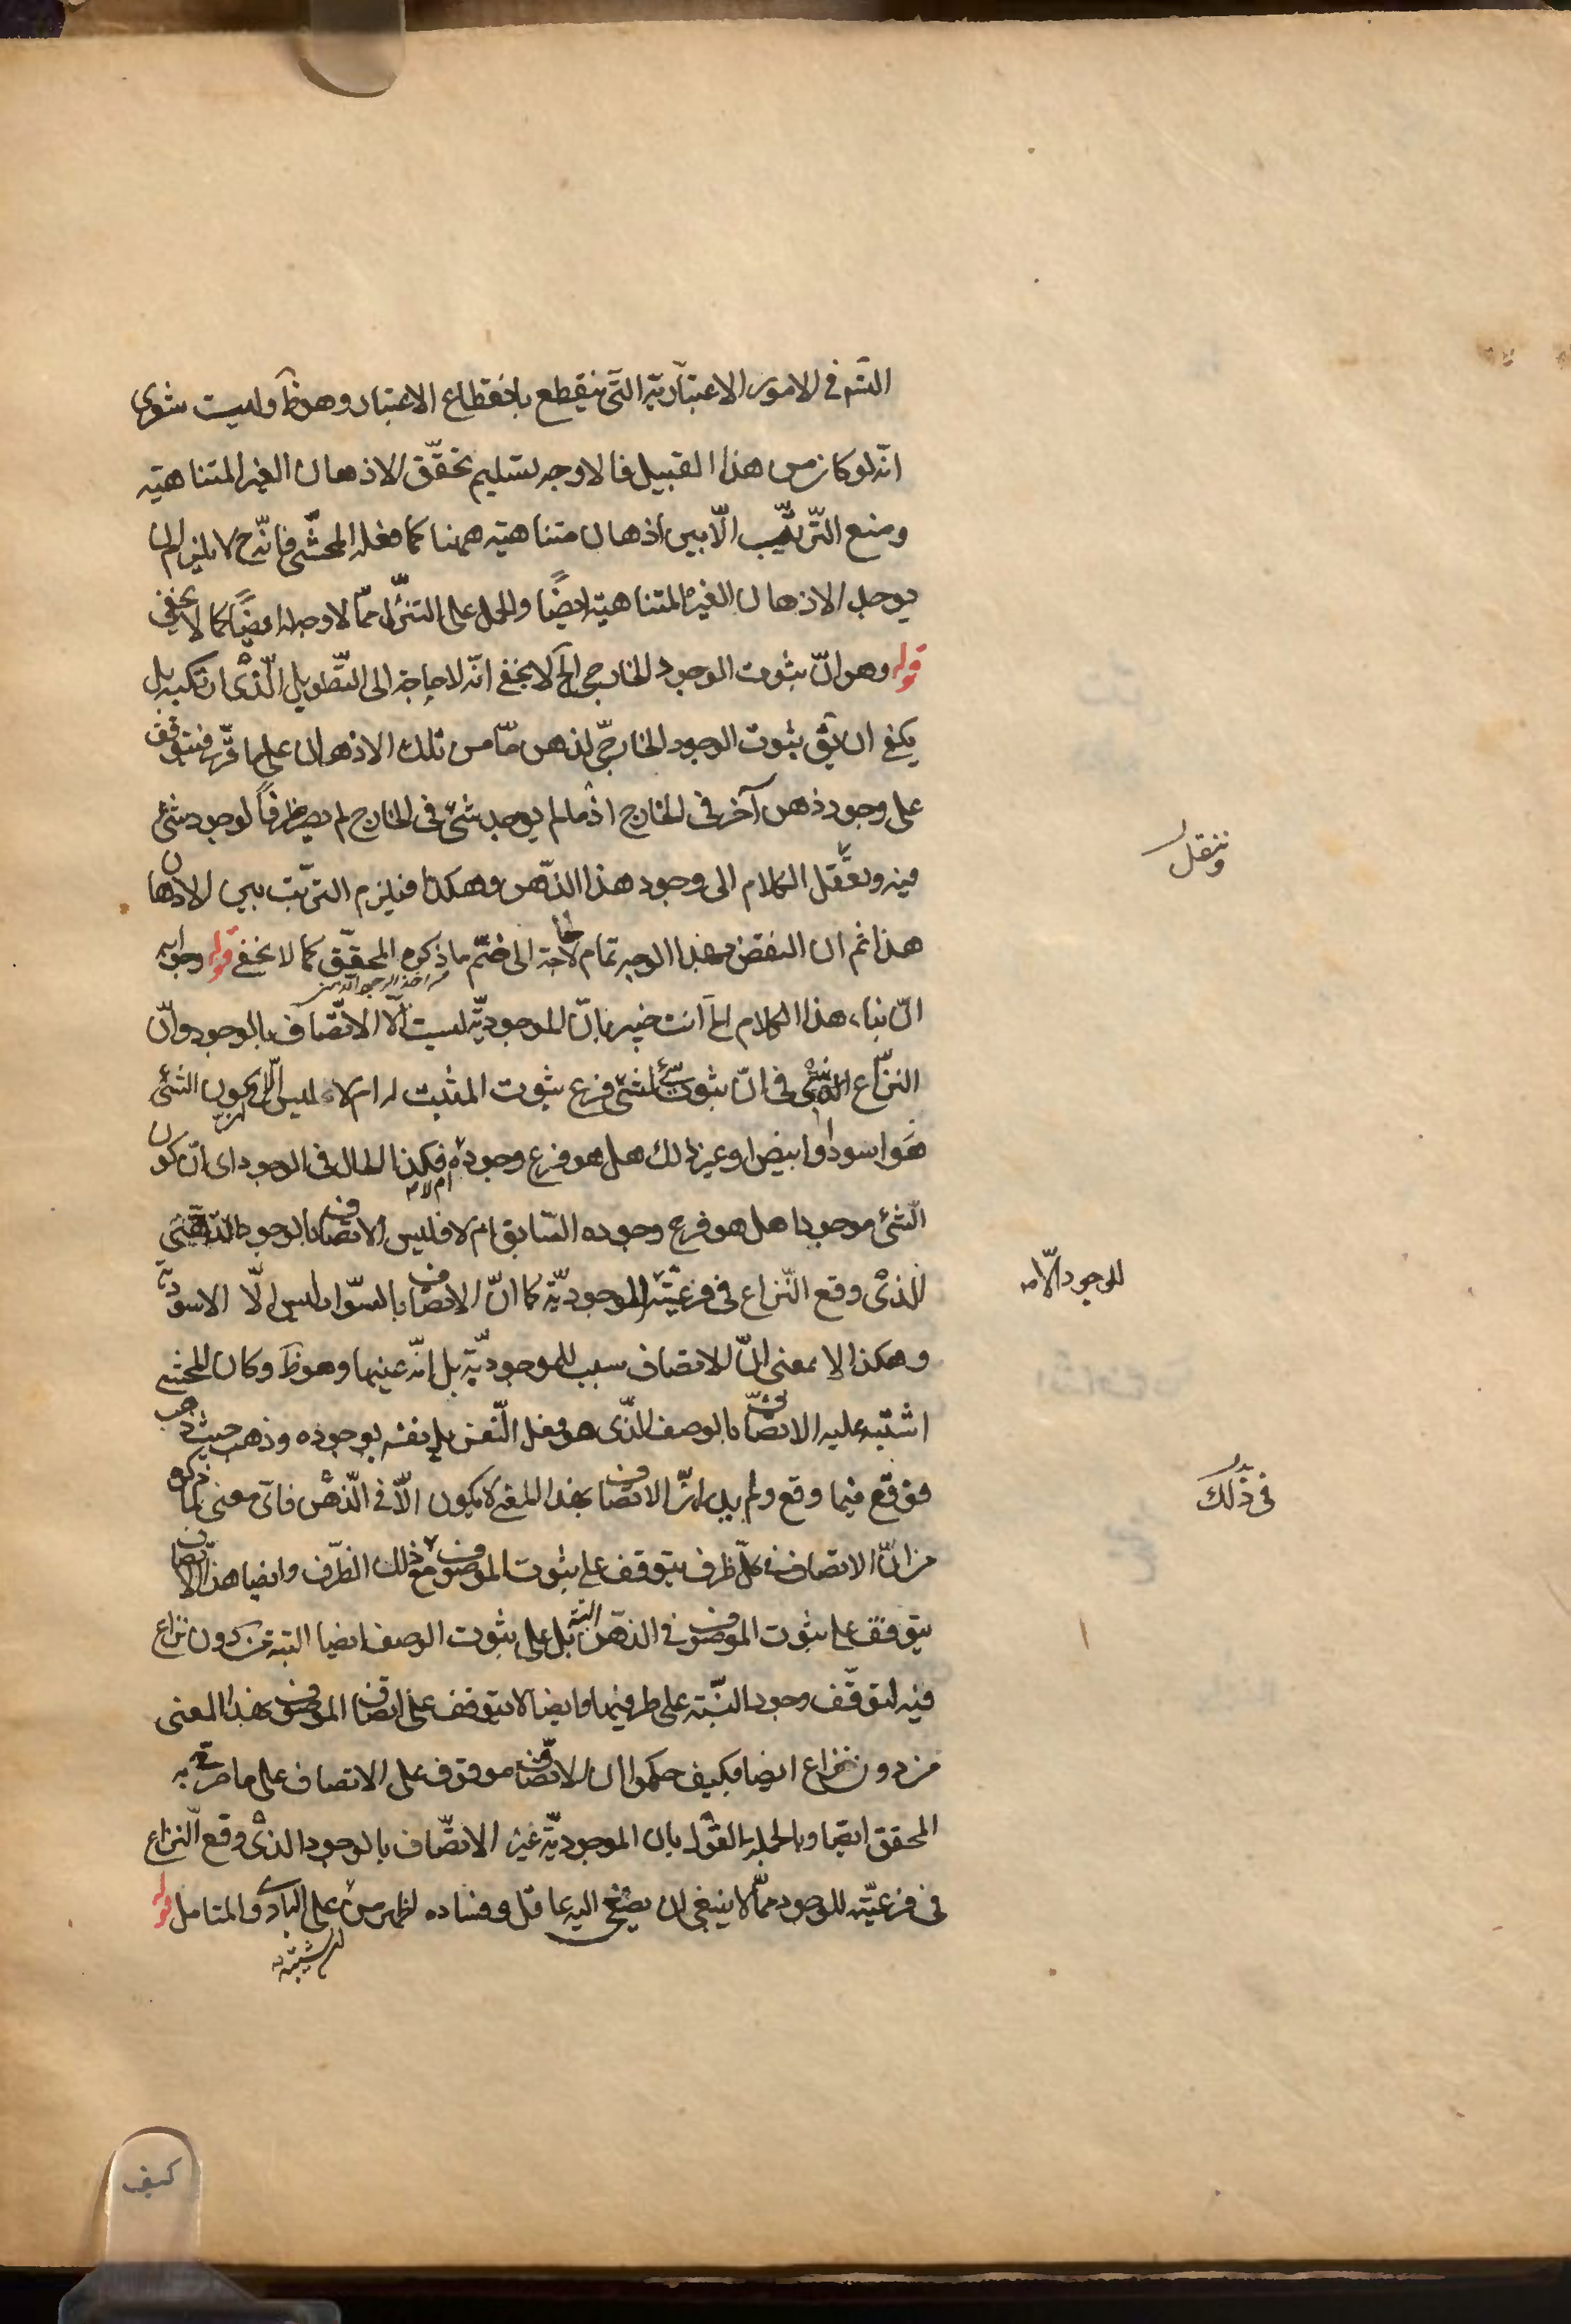 التسم في الامور الاعتبارية التي ينقطع بانقطاع الاعتبار وهو ظ وليت شعرى
انه لو كان من هذا القبيل فما الاوجه لتسليم تحقق الاذهان الغير المتناهية
ومنع الترتيب الا بين اذهان متناهية ههنا كما فعله المحشى فانه ح لا يلزم ان
يوجد الاذهان الغير المتناهية ايضا والحمل على التنزل مما لا وجه له ايضا كما لا يخفى
قوله وهو ان ثبوت الوجود الخارجى الخ لا يخفى انه لا حاجة الى التطويل الذى ارتكبه بل
يكفى ان يق ثبوت الوجود الخارجى لذهن ما من تلك الاذهان على ما قرر فيتوقف
على وجود ذهن آخر فى الخارج اذ ما لم يوجد شئ فى الخارج لم يصر ظرفا لوجود شئ
فيه وننقل الكلام الى وجود هذا الذهن وهكذا فيلزم الترتب بين الاذهان
هذا ثم ان النقض بهذا الوجه تمام لا حاجة الى ضم ما ذكره المحقق كما لا يخفى قوله وجوابه
ان بناء هذا الكلام الخ انت خبير بان الموجودية ليست الا الاتصاف بالوجود وان
النزاع الذى فى ان ثبوت شئ لشئ فرع ثبوت المثبت له ام لا ليس الا ان كون الشئ
هو اسود او ابيض او غير ذلك هل هو فرع وجوده ام لا فكذا الحال فى الوجود اى ان كون
الشئ موجودا هل هو فرع وجوده السابق ام لا فليس الاتصاف بالوجود الذهنى
للذى وقع النزاع فى فرعيته الموجودية كما ان الاتصاف بالسواد ليس الا الاسودية
وهكذا لا بمعنى ان الاتصاف سبب للموجودية بل انه عينها وهو ظ وكان المحشى
اشتبه عليه الاتصاف بالوصف الذى هو فعل النفس بل نفسه بوجوده وذهب حيث ذهب
فوقع فيما وقع ولم يدر ان الاتصاف بهذا المعنى لا يكون الا فى الذهن فاى معنى لما ذكره
من ان الاتصاف فى كل ظرف يتوقف على ثبوت الموصوف فى ذلك الظرف وايضا هذا الاتصاف
يتوقف على ثبوت الموصوف فى الذهن البتة بل على ثبوت الوصف ايضا البتة من دون نزاع
فيه لتوقف وجود النسبة على طرفيها وايضا لا يتوقف على اتصاف الموصوف بهذا المعنى
من دون نزاع ايضا فكيف حكموا ان الاتصاف موقوف على الاتصاف على ما صرح به
المحقق ايضا وبالجملة القول بان الموجودية غير الاتصاف بالوجود الذى وقع النزاع
فى فرعيته للوجود مما لا ينبغى ان يصغى اليه عاقل وفساده لظهر من على البادى والمتامل قوله
وننقل
للوجود الا
فى ذلك
كيف